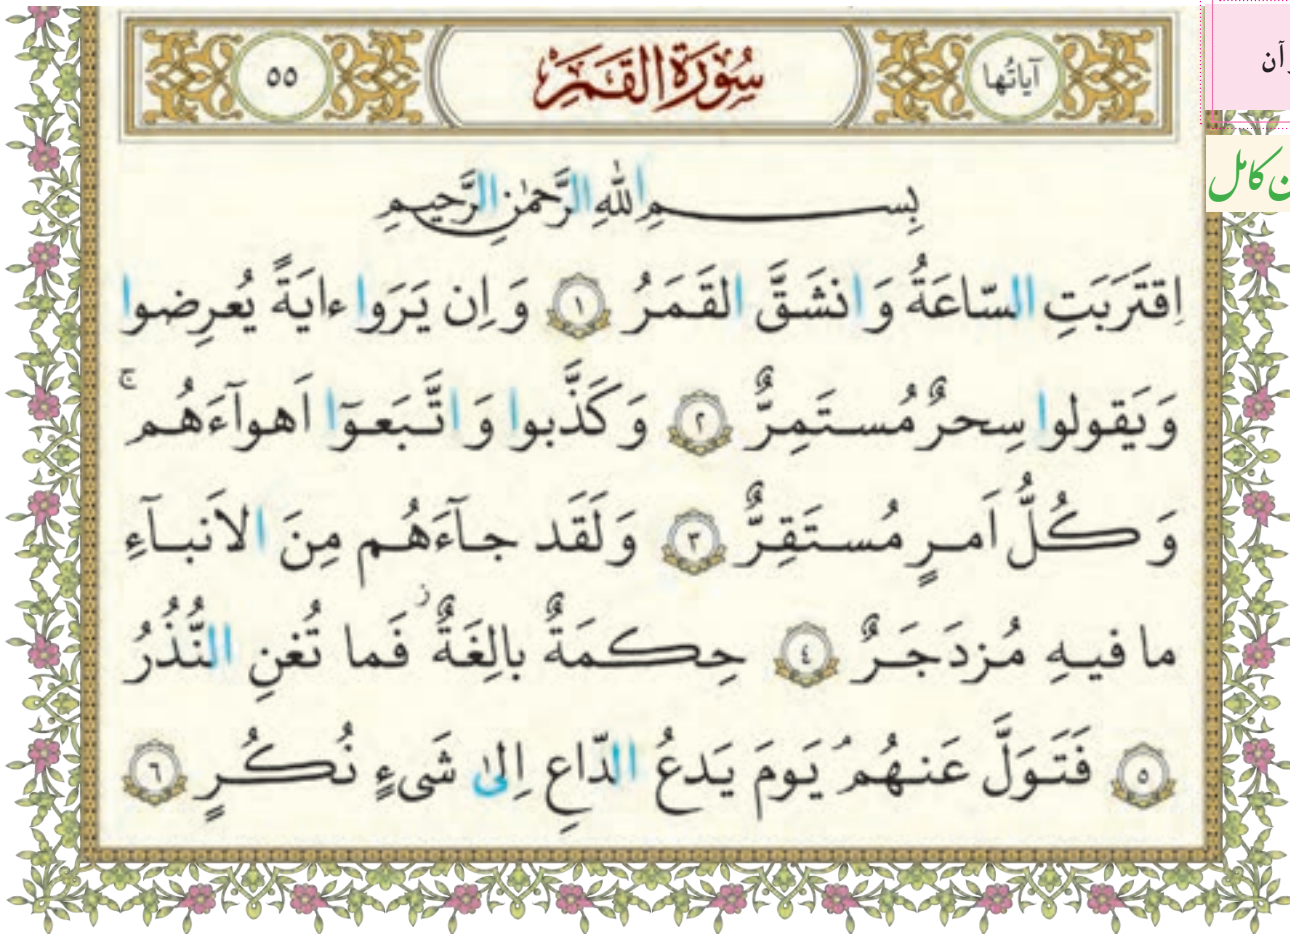 آیاتُها
سُورَةُ القَمَرِ
٥٥
بِسمِ اللهِ الرَّحمٰنِ الرَّحیمِ
اِقتَرَبَتِ السّاعَةُ وَ انشَقَّ القَمَرُ ١ وَ اِن یَرَوا ءایَةً یُعرِضوا
وَ یَقولوا سِحرٌ مُستَمِرٌّ ٢ وَ کَذَّبوا وَ اتَّبَعوٓا اَهوآءَهُم ۚ
وَ کُلُّ اَمرٍ مُستَقِرٌّ ٣ وَ لَقَد جآءَهُم مِنَ الاَنبآءِ
ما فیهِ مُزدَجَرٌ ٤ حِکمَةٌ بالِغَةٌ ز فَما تُغنِ النُّذُرُ
٥ فَتَوَلَّ عَنهُم ُ یَومَ یَدعُ الدّاعِ اِلیٰ شَیءٍ نُکُرٍ ٦
ن کامل